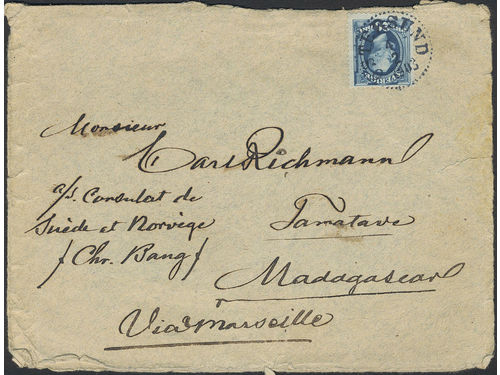 Monsieur
Carl Richmann
a/s. Consulat de
Suède et Norvège
/ Chr. Bang /
Tamatave
Madagascar
Via Marseille